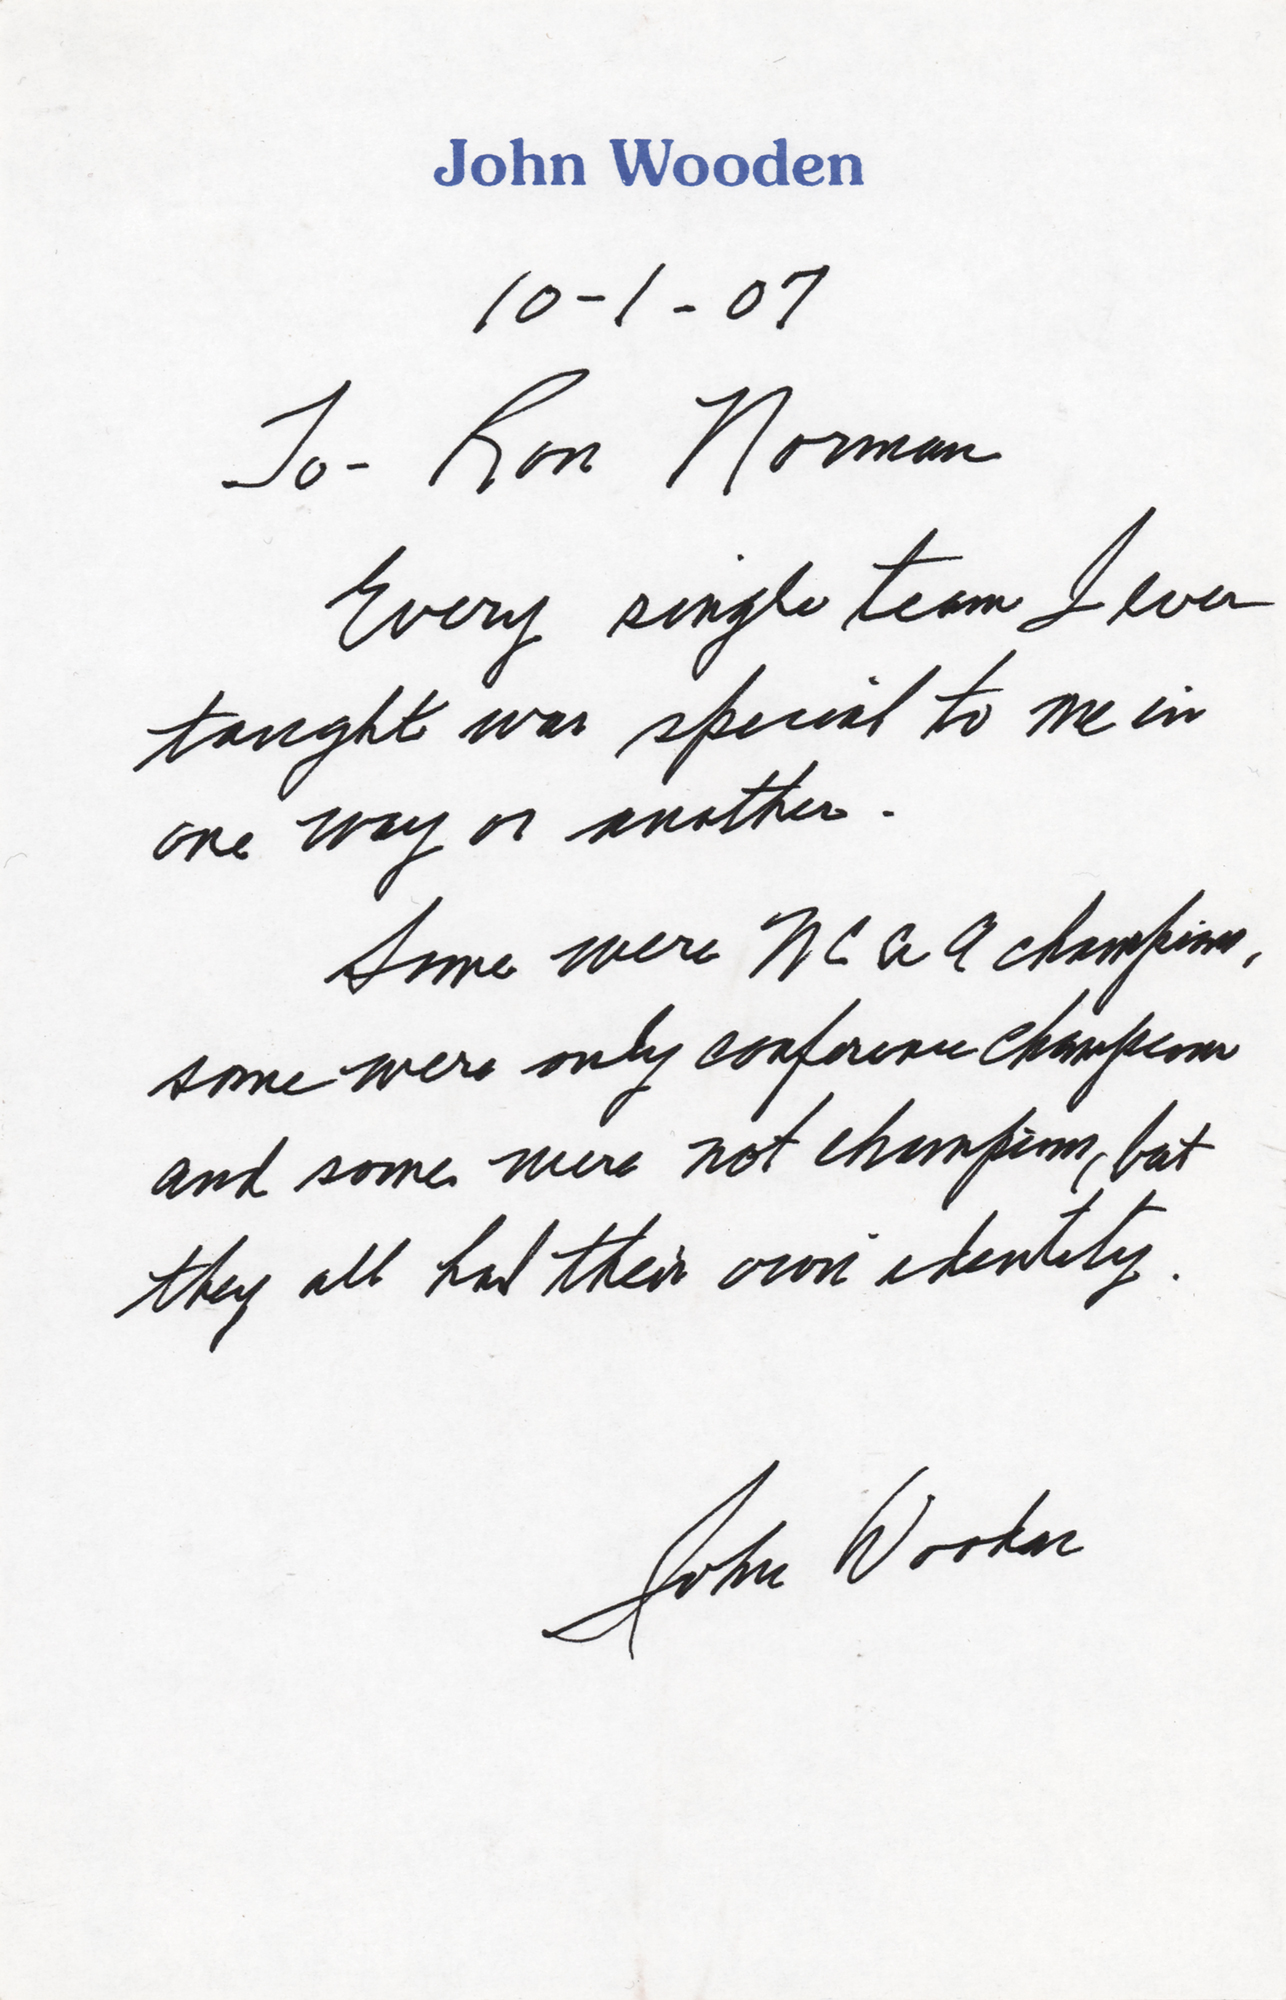 John Wooden
10-1-07
To- Ron Norman
Every single team I ever
taught was special to me in
one way or another.
Some were NCAA champions,
some were only conference champions
and some were not champions, but
they all had their own identity.
John Wooden